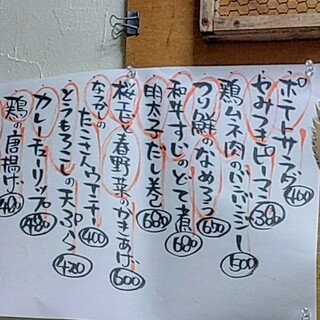 ポテトサラダ 400
やみつきピーマン 380
鶏ムネ肉のバンバンジー 500
フリ鮮のなめろう 650
和牛すじのどて煮 680
明太子だし巻 680
桜エビと春野菜のかきあげ 600
たこさんウインナー 400
とうもろこしの天ぷら 420
カレーチーリップ 480
鶏の唐揚げ 480